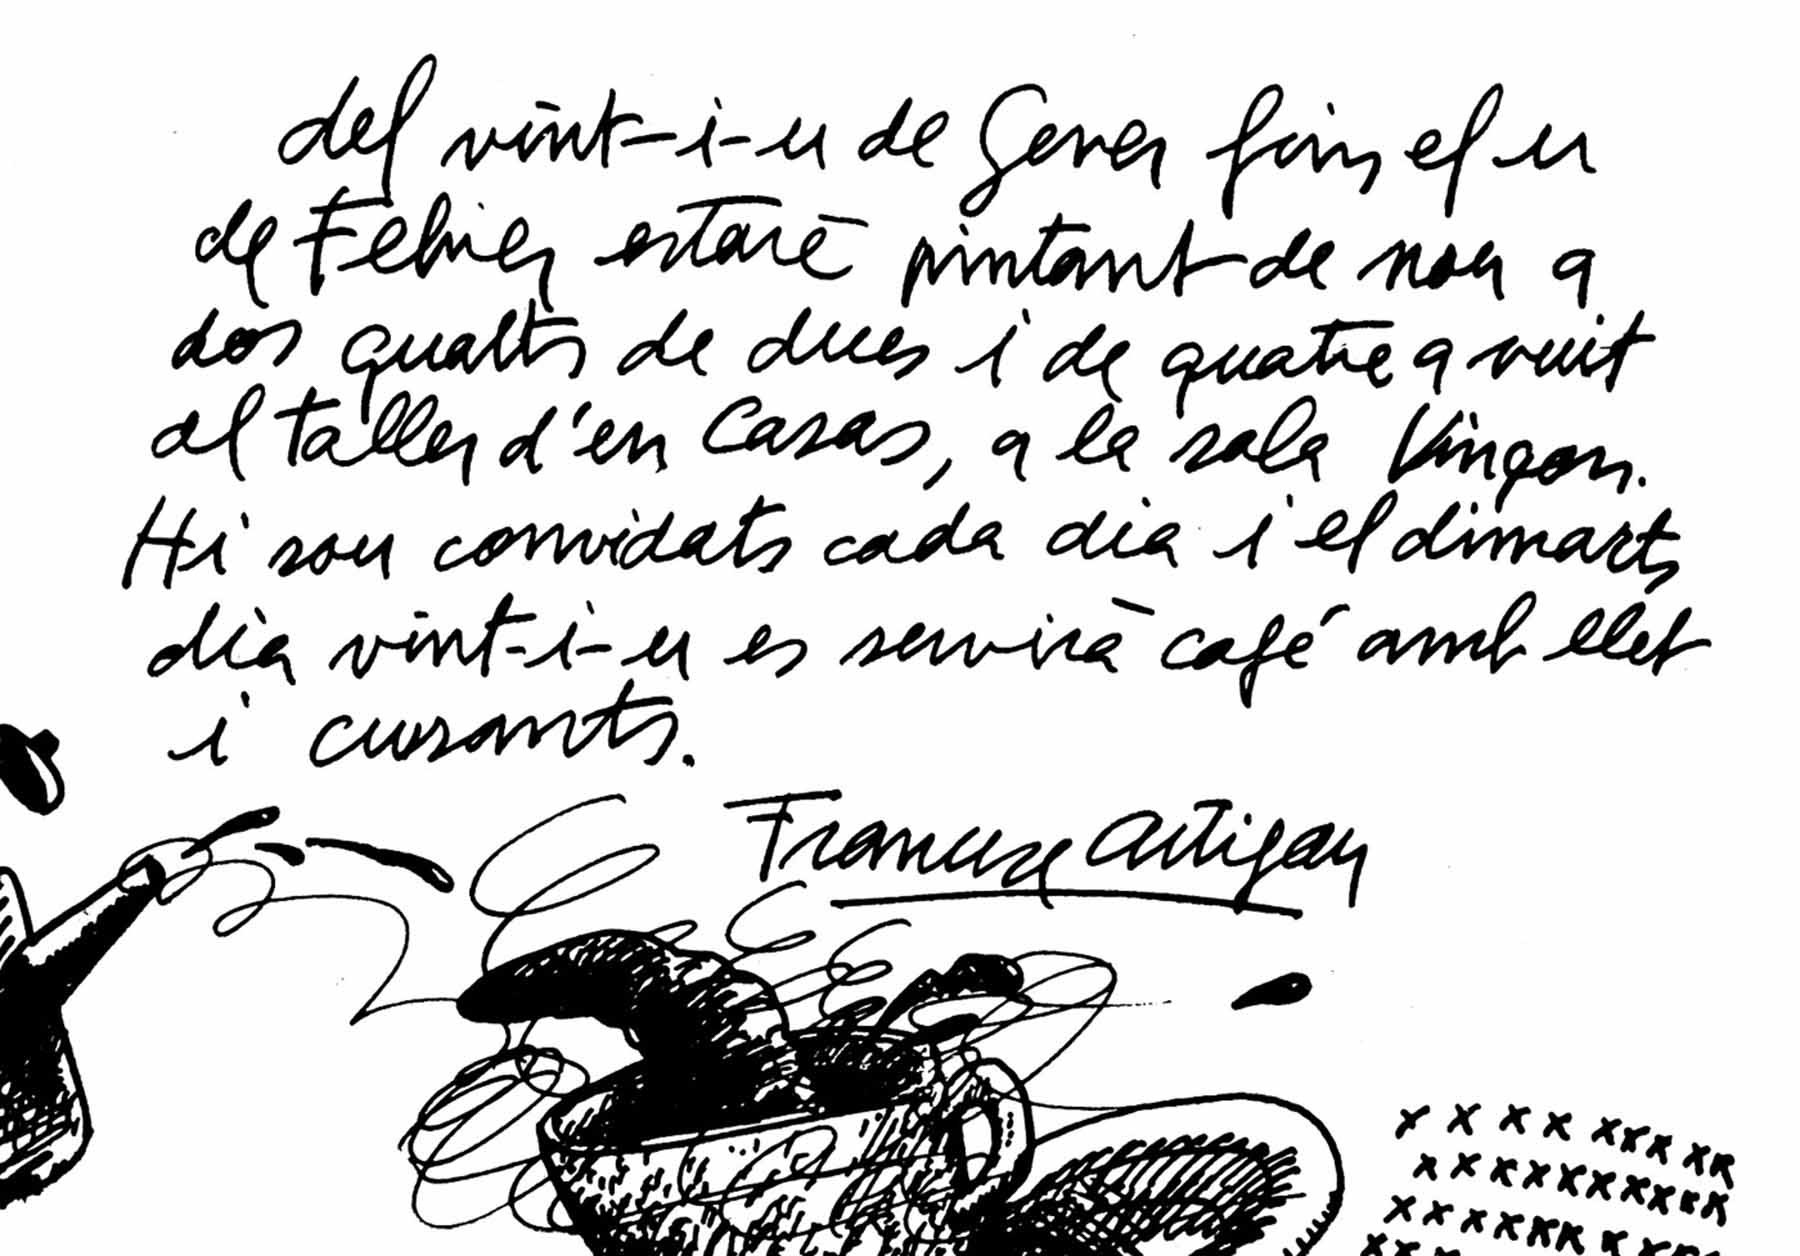 del vint-i-u de Gener fins el u
de Febrer estaré pintant de nou a
dos quarts de dues i de quatre a vuit
al taller d'en Casas, a la sala Vinçon.
Hi sou convidats cada dia i el dimarts
dia vint-i-u es servirà café amb llet
i cursants.
Francesc Artigau
x x x x x x x x x
x x x x x x x x x x